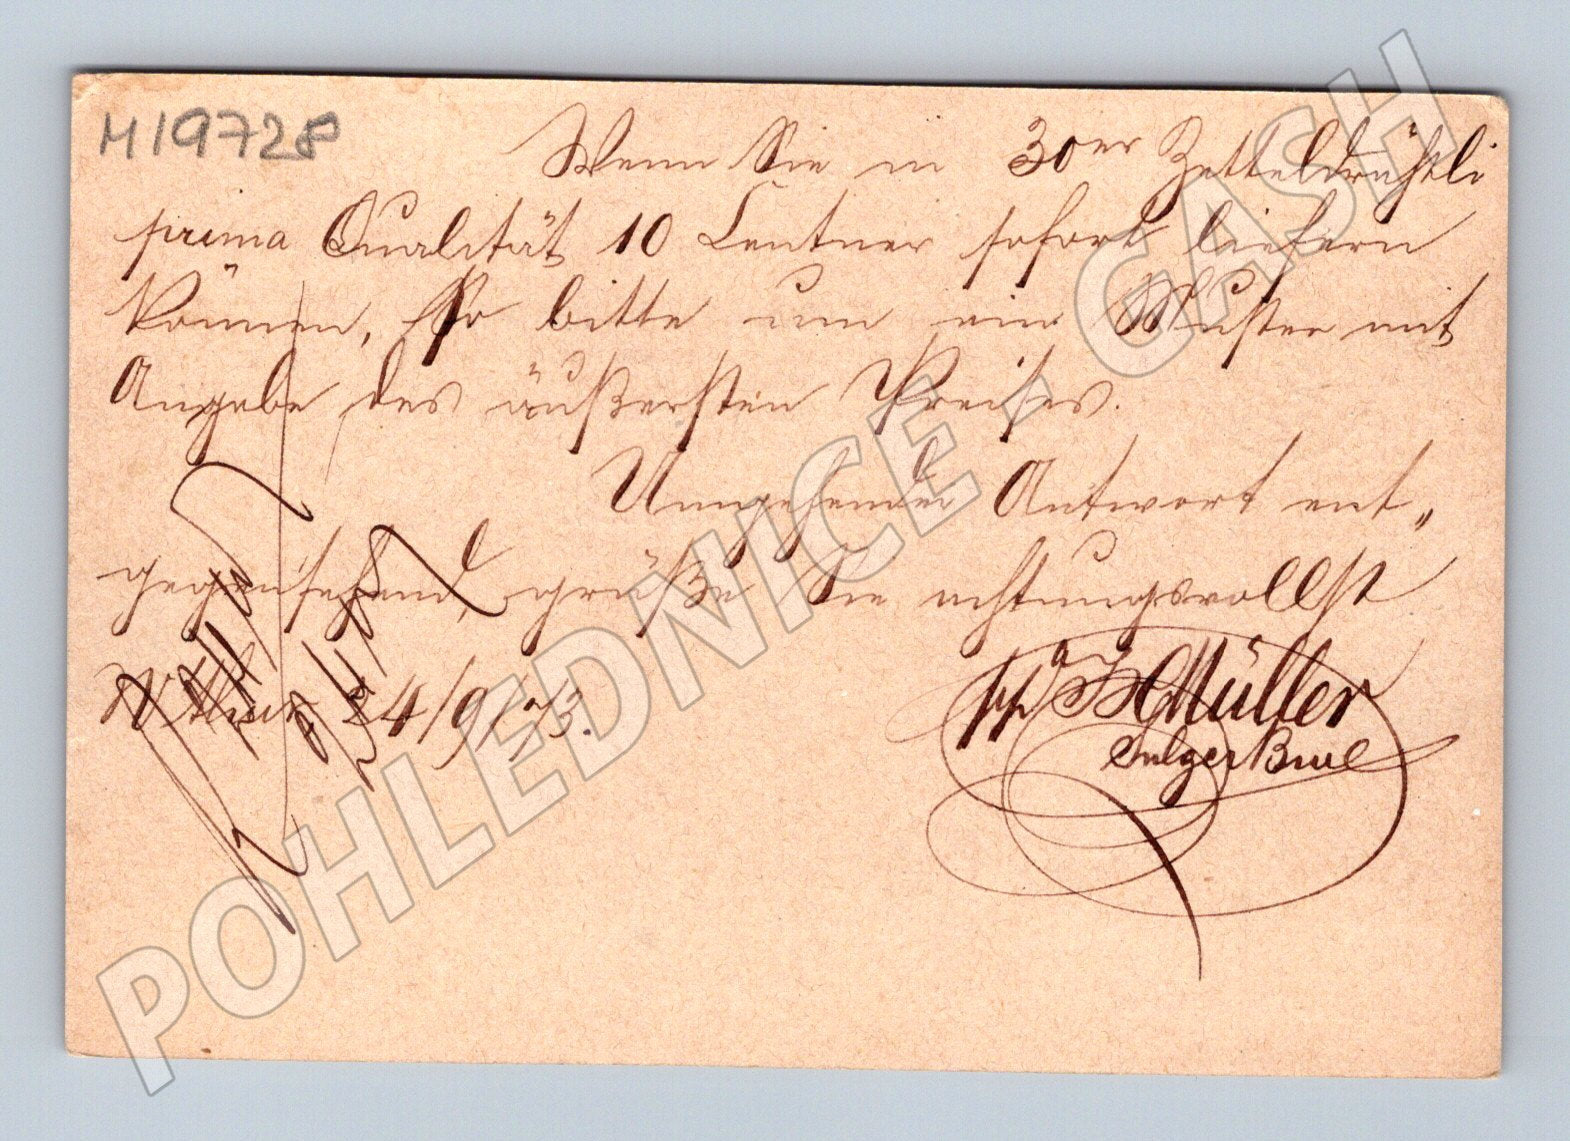 M19728
Wenn Sie in 30er Zetteldrähtli
prima Qualität 10 Centner sofort liefern
können, so bitte um ein Muster mit
Angabe des äußersten Preises.
Umgehender Antwort ent„
gegensehend grüße Sie achtungsvollst
24/9/73.
pp Müller
Sulger
POHLEDNICE - CASH